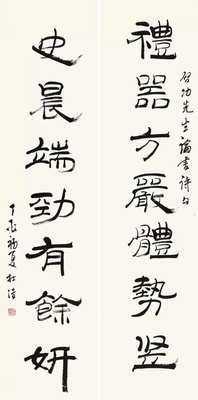 啓功先生論書詩句
禮器方嚴體勢坚
史晨端勁有餘妍
丁亥初夏杜